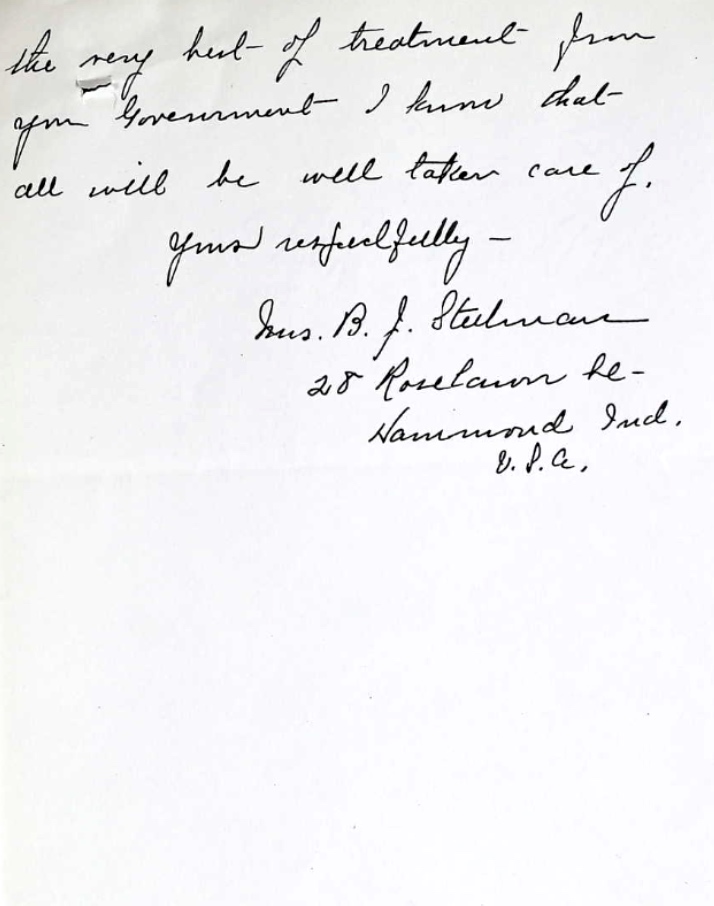 the very best of treatment from
your Government I know that
all will be well taken care of.
Yours respectfully -
Mrs. B. J. Stelman
28 Roselawn
Hammond Ind.
U.S.A.